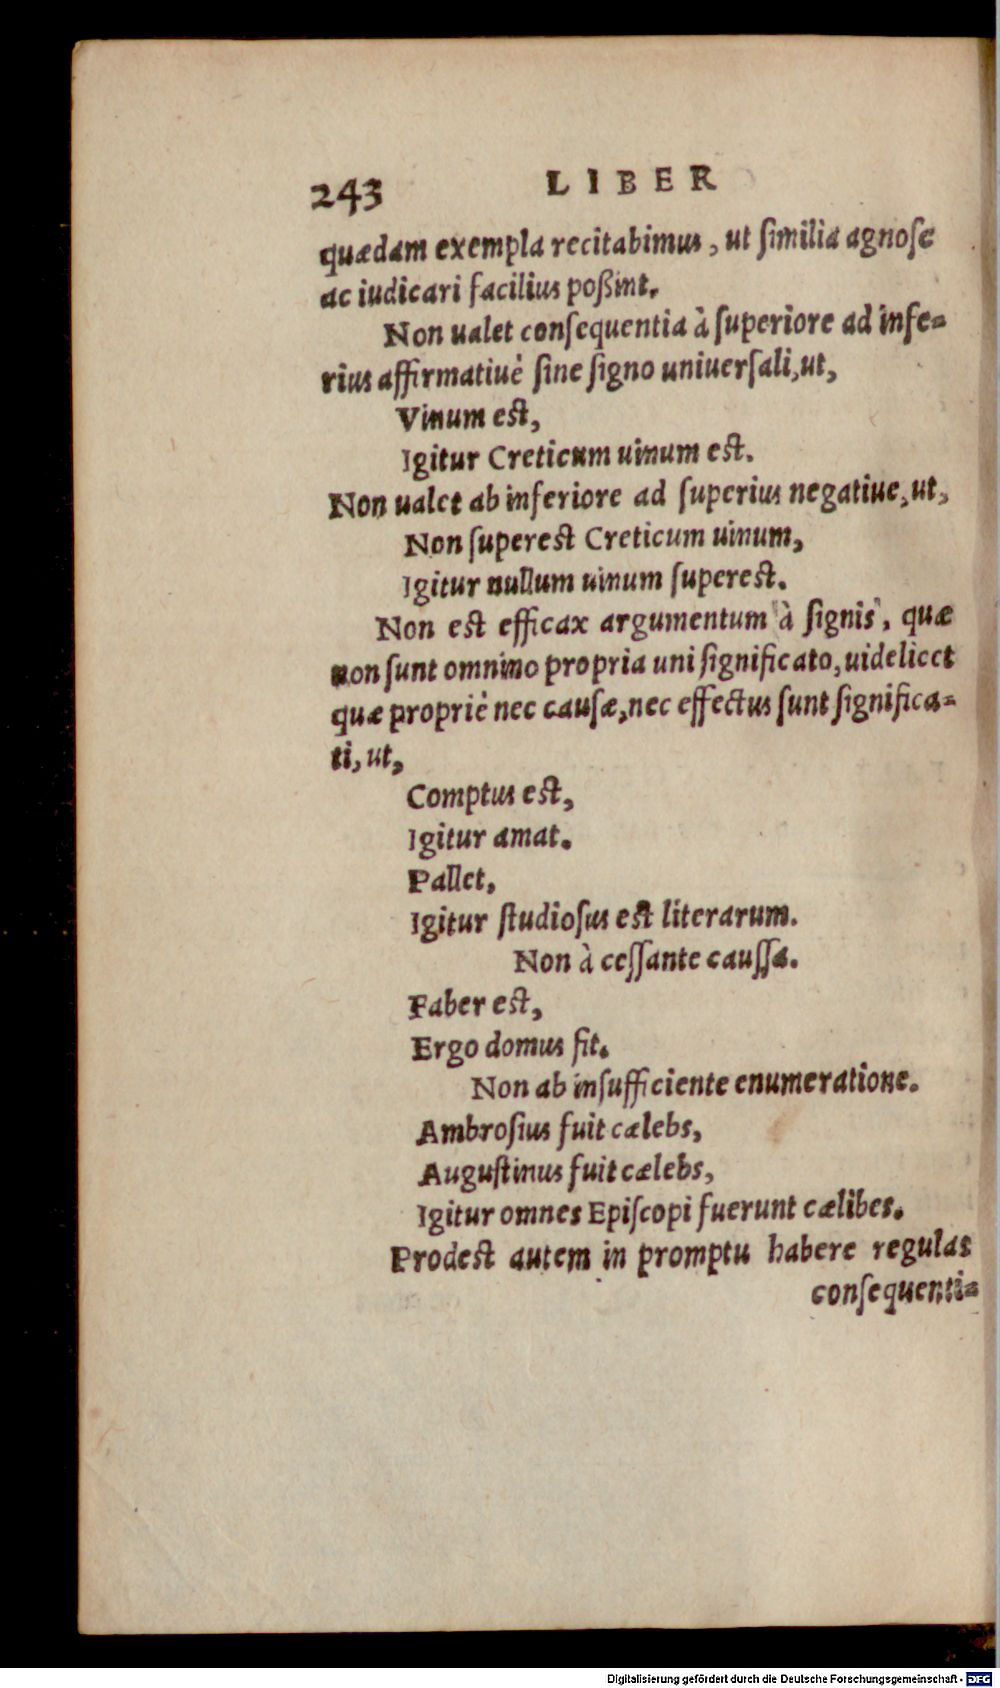 243 LIBER
quædam exempla recitabimus, ut ſimilia agnoſc
ac iudicari facilius poßint.
Non ualet conſequentia à ſuperiore ad infe-
rius affirmatiuè ſine ſigno uniuerſali, ut,
Vinum est,
Igitur Creticum uinum est.
Non ualet ab inferiore ad ſuperius negatiue, ut,
Non ſuperest Creticum uinum,
Igitur nullum uinum ſuperest.
Non est efficax argumentum à ſignis, quæ
non ſunt omnino propria uni ſignificato, uidelicet
quæ propriè nec cauſæ, nec effectus ſunt ſignifica-
ti, ut,
Comptus est,
Igitur amat.
Pallet,
Igitur ſtudioſus est literarum.
Non à ceſſante cauſſa.
Faber est,
Ergo domus fit.
Non ab inſufficiente enumeratione.
Ambroſius fuit cælebs,
Auguſtinus fuit cælebs,
Igitur omnes Epiſcopi fuerunt cælibes.
Prodest autem in promptu habere regulas
conſequenti-
Digitalisierung gefördert durch die Deutsche Forschungsgemeinschaft - DFG